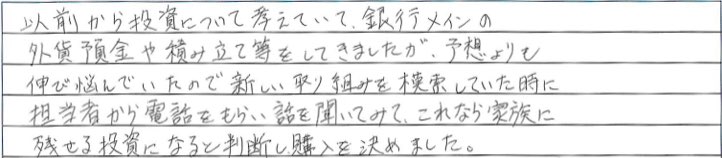 以前から投資について考えていて、銀行メインの
外貨預金や積み立て等をしてきましたが、予想よりも
伸び悩んでいたので新しい取り組みを模索していた時に
担当者から電話をもらい話を聞いてみて、これなら家族に
残せる投資になると判断し購入を決めました。